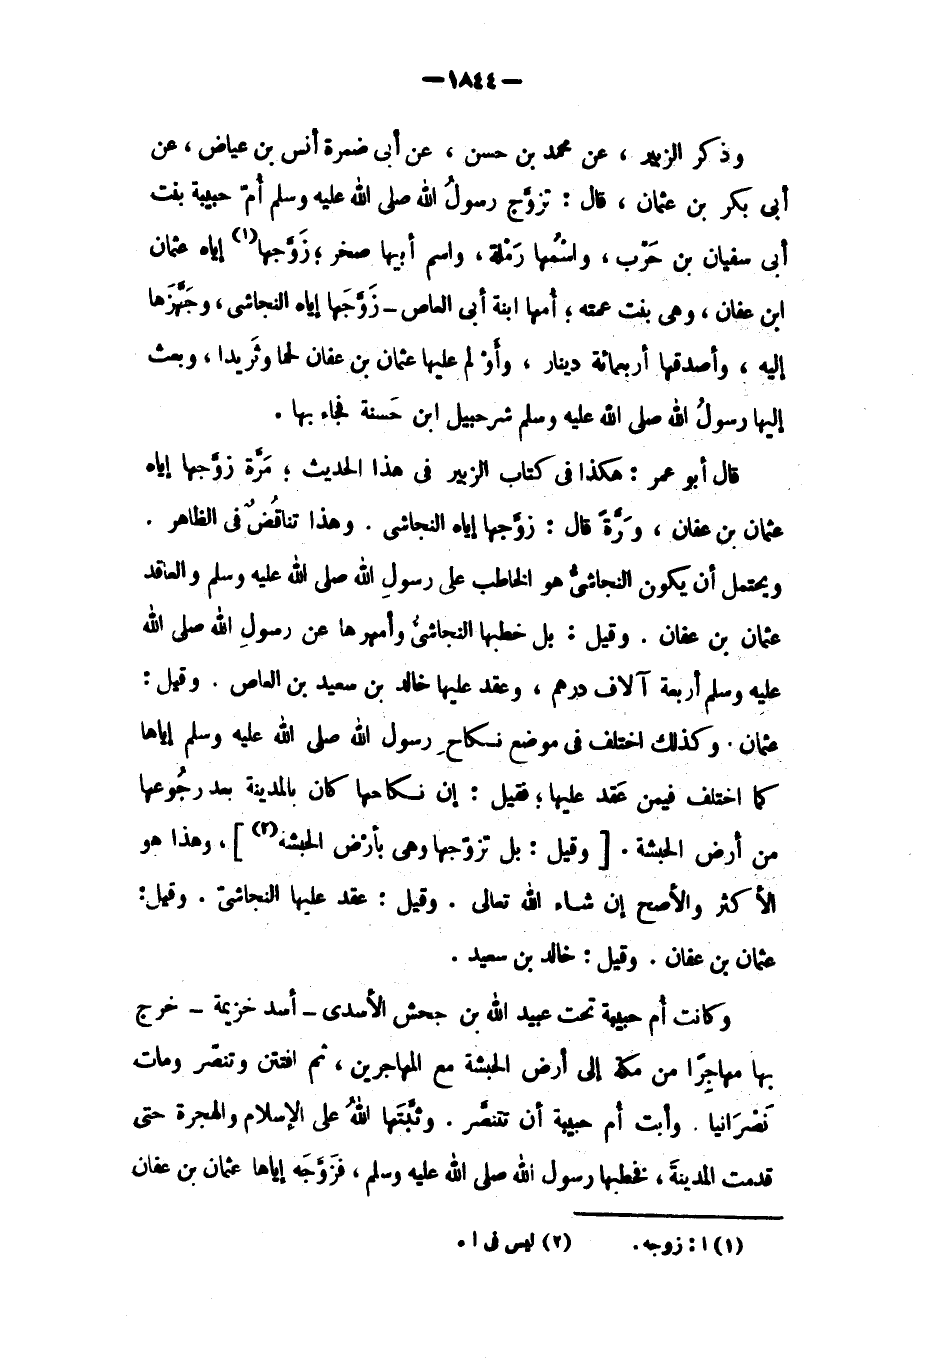 —١٨٤٤—
وذكر الزبير ، عن محمد بن حسن ، عن أبى ضمرة أنس بن عياض ، عن
أبى بكر بن عثمان ، قال : تزوَّج رسولُ الله صلى الله عليه وسلم أمّ حبيبة بنت
أبى سفيان بن حَرْب ، واسْمُها رَمْلة ، واسم أبيها صخر ؛ زَوَّجها(١) إياه عثمان
ابن عفان ، وهى بنت عمته ؛ أمها ابنة أبى العاص ــ زَوَّجَها إياه النجاشى ، وجَهَّزَها
إليه ، وأصدقها أربعمائة دينار ، وأَوْ لم عليها عثمان بن عفان لحما وثَريدا ، وبعث
إليها رسولُ الله صلى الله عليه وسلم شرحبيل ابن حَسنة فجاء بها .
قال أبو عمر : هكذا فى كتاب الزبير فى هذا الحديث ؛ مَرَّة زوَّجها إياه
عثمان بن عفان ، ومَرَّةً قال : زوَّجها إياه النجاشى . وهذا تناقُضٌ فى الظاهر .
ويحتمل أن يكون النجاشىُّ هو الخاطب على رسولِ الله صلى الله عليه وسلم والعاقد
عثمان بن عفان . وقيل : بل خطبها النجاشىُّ وأمهرها عن رسولِ الله صلى الله
عليه وسلم أربعة آلاف درهم ، وعقد عليها خالد بن سعيد بن العاص . وقيل :
عثمان . وكذلك اختلف فى موضع نكاحِ رسول الله صلى الله عليه وسلم إياها
كما اختلف فيمن عَقد عليها ؛ فقيل : إن نكاحها كان بالمدينة بعد رجُوعها
من أرض الحبشة . [ وقيل : بل تزوّجها وهى بأرْض الحبشة(٢) ] . وهذا هو
الأكثر والأصح إن شاء الله تعالى . وقيل : عقد عليها النجاشىّ . وقيل :
عثمان بن عفان . وقيل : خالد بن سعيد .
وكانت أم حبيبة تحت عبيد الله بن جحش الأسدى ــ أسد خزيمة ــ خرج
بها مهاجِرًا من مكة إلى أرض الحبشة مع المهاجرين ، ثم افتتن وتنصّر ومات
نَصْرَانيا . وأبت أم حبيبة أن تتنصَّر . وثبَّتَها اللهُ على الإسلام والهجرة حتى
قدمت المدينةَ ، فخطبها رسول الله صلى الله عليه وسلم ، فَزَوَّجَه إياها عثمان بن عفان
(١) ا : زوجه . (٢) ليس فى ا .